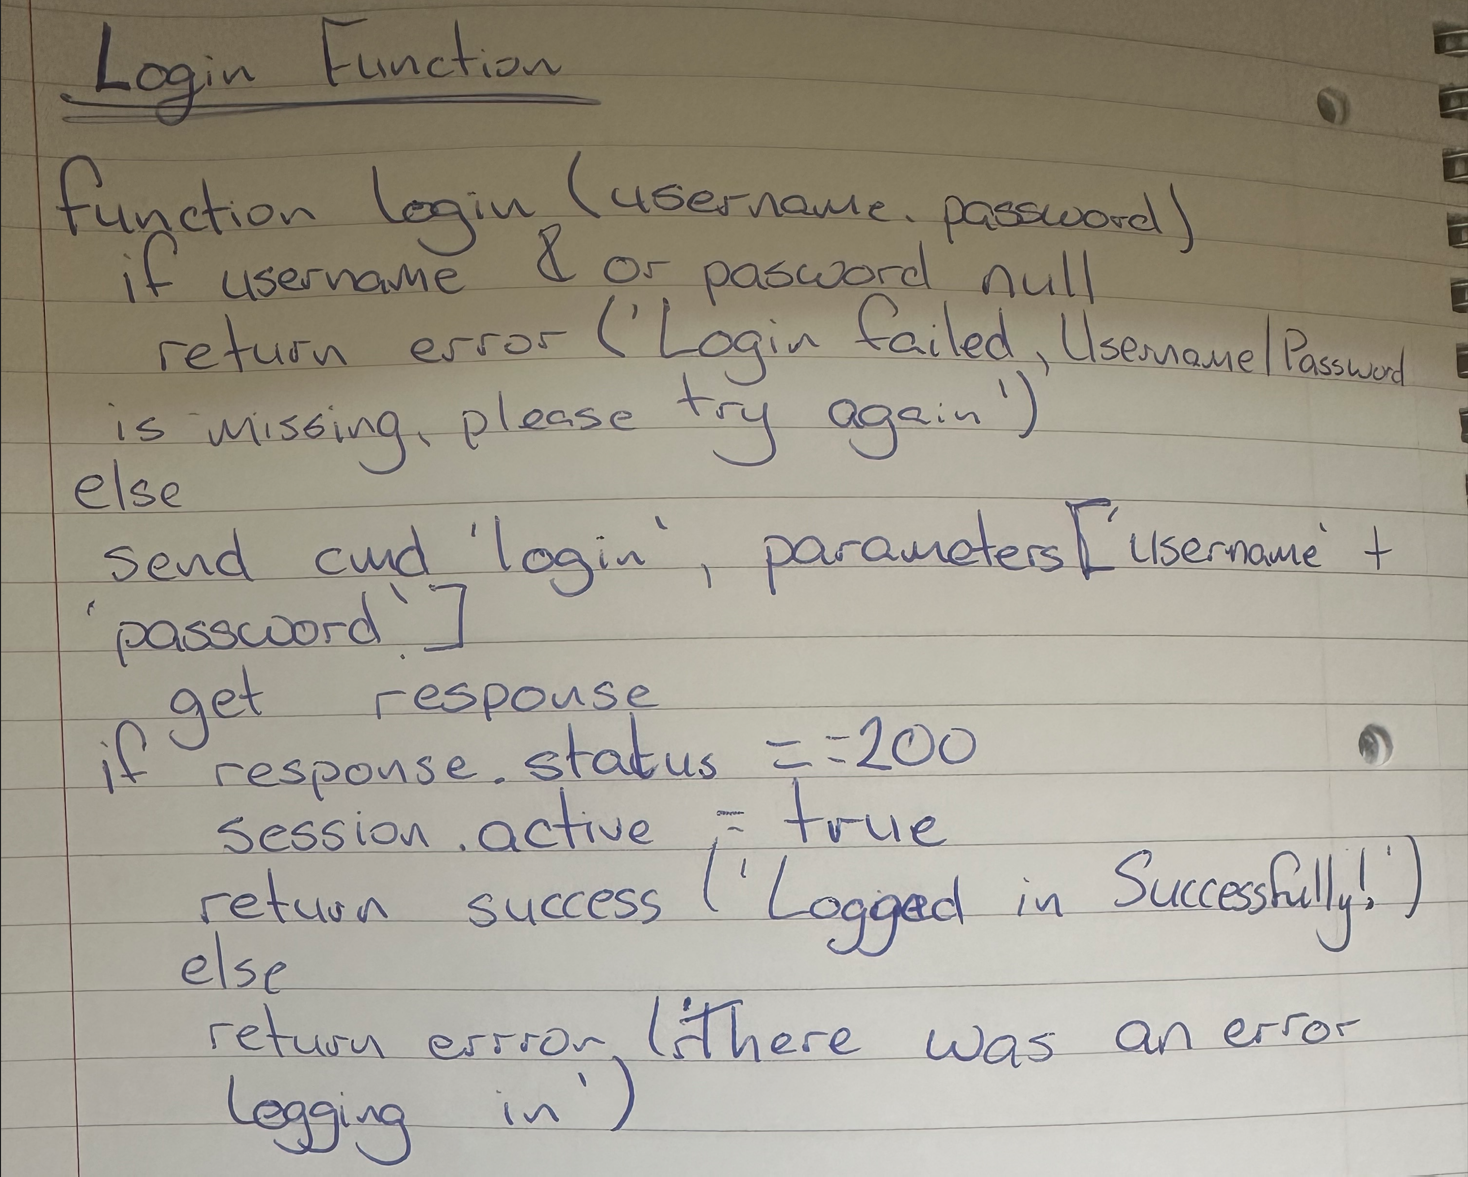 Login Function
function login (username. password)
if username & or pasword null
return error ('Login failed, Username/Password
is missing, please try again')
else
send cmd 'login', parameters['username' +
'password']
get response
if response.status ==200
session.active = true
return success ('Logged in Successfully!')
else
return errror, ('There was an error
logging in')